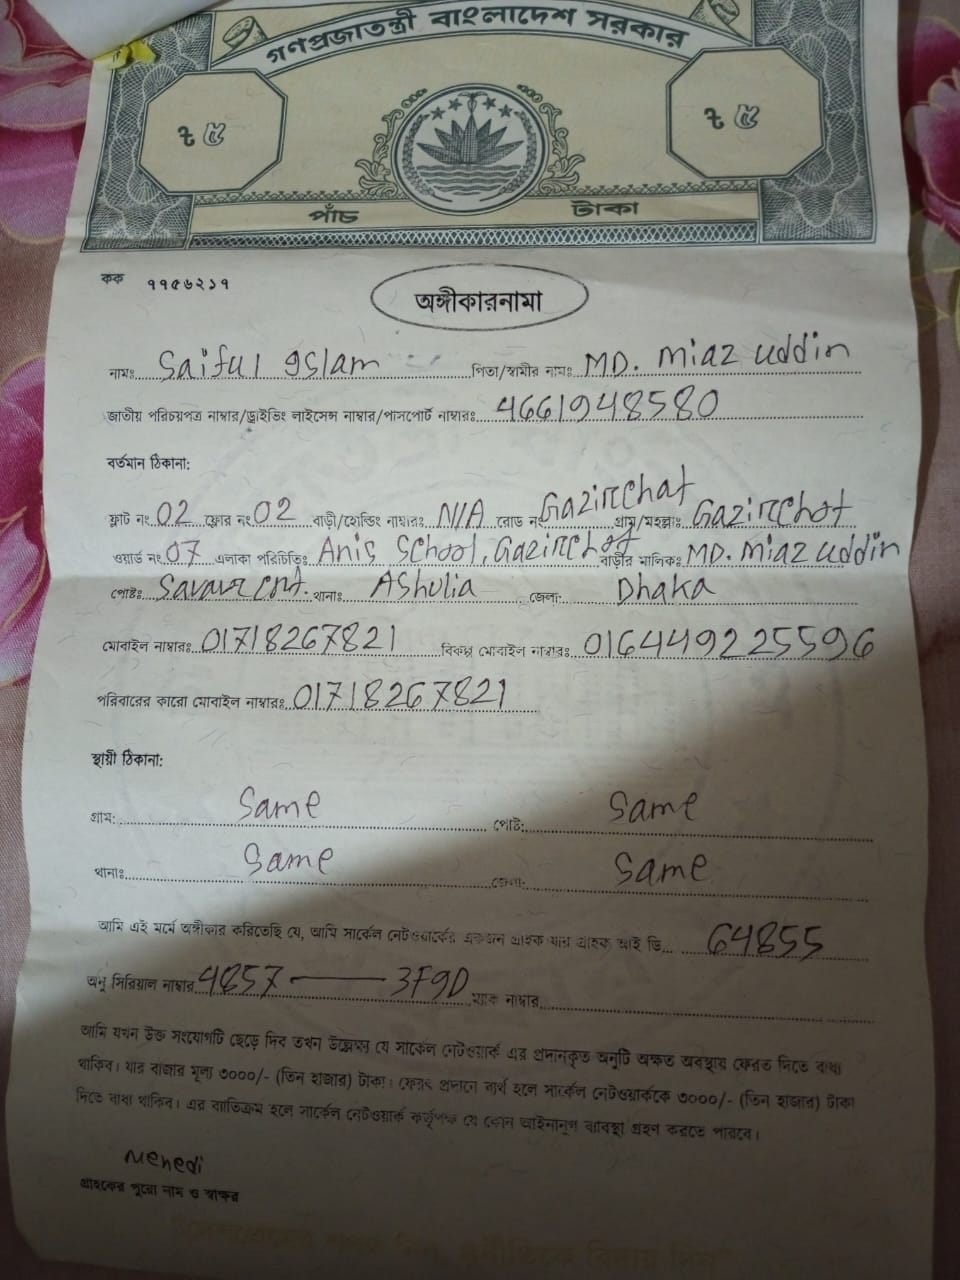 গণপ্রজাতন্ত্রী বাংলাদেশ সরকার
৳ ৫ ৳ ৫
পাঁচ টাকা
কক ৭৭৫৬২১৭
অঙ্গীকারনামা
নামঃ Saiful Islam পিতা/স্বামীর নামঃ MD. Miaz uddin
জাতীয় পরিচয়পত্র নাম্বার/ড্রাইভিং লাইসেন্স নাম্বার/পাসপোর্ট নাম্বারঃ 4661948580
বর্তমান ঠিকানা:
ফ্লাট নং 02 ফ্লোর নং 02 বাড়ী/হোল্ডিং নাম্বারঃ N/A রোড নং Gazirchat গ্রাম/মহল্লাঃ Gazirchot
ওয়ার্ড নং 07 এলাকা পরিচিতিঃ Anis School, Gazirchot বাড়ীর মালিকঃ MD. Miaz uddin
পোষ্টঃ Savar cnt. থানাঃ Ashulia জেলা: Dhaka
মোবাইল নাম্বারঃ 01718267821 বিকল্প মোবাইল নাম্বারঃ 016449225596
পরিবারের কারো মোবাইল নাম্বারঃ 01718267821
স্থায়ী ঠিকানা:
গ্রাম: Same পোষ্ট: Same
থানাঃ Same জেলা: Same
আমি এই মর্মে অঙ্গীকার করিতেছি যে, আমি সার্কেল নেটওয়ার্কের একজন গ্রাহক যার গ্রাহক আই ডি 64855
অনু সিরিয়াল নাম্বার 4857 — 3F9D ম্যাক নাম্বার
আমি যখন উক্ত সংযোগটি ছেড়ে দিব তখন উল্লেখ্য যে সার্কেল নেটওয়ার্ক এর প্রদানকৃত অনুটি অক্ষত অবস্থায় ফেরত দিতে বাধ্য
থাকিব। যার বাজার মূল্য ৩০০০/- (তিন হাজার) টাকা। ফেরৎ প্রদানে ব্যর্থ হলে সার্কেল নেটওয়ার্ককে ৩০০০/- (তিন হাজার) টাকা
দিতে বাধ্য থাকিব। এর ব্যতিক্রম হলে সার্কেল নেটওয়ার্ক কর্তৃপক্ষ যে কোন আইনানুগ ব্যবস্থা গ্রহণ করতে পারবে।
Mehedi
গ্রাহকের পুরো নাম ও স্বাক্ষর